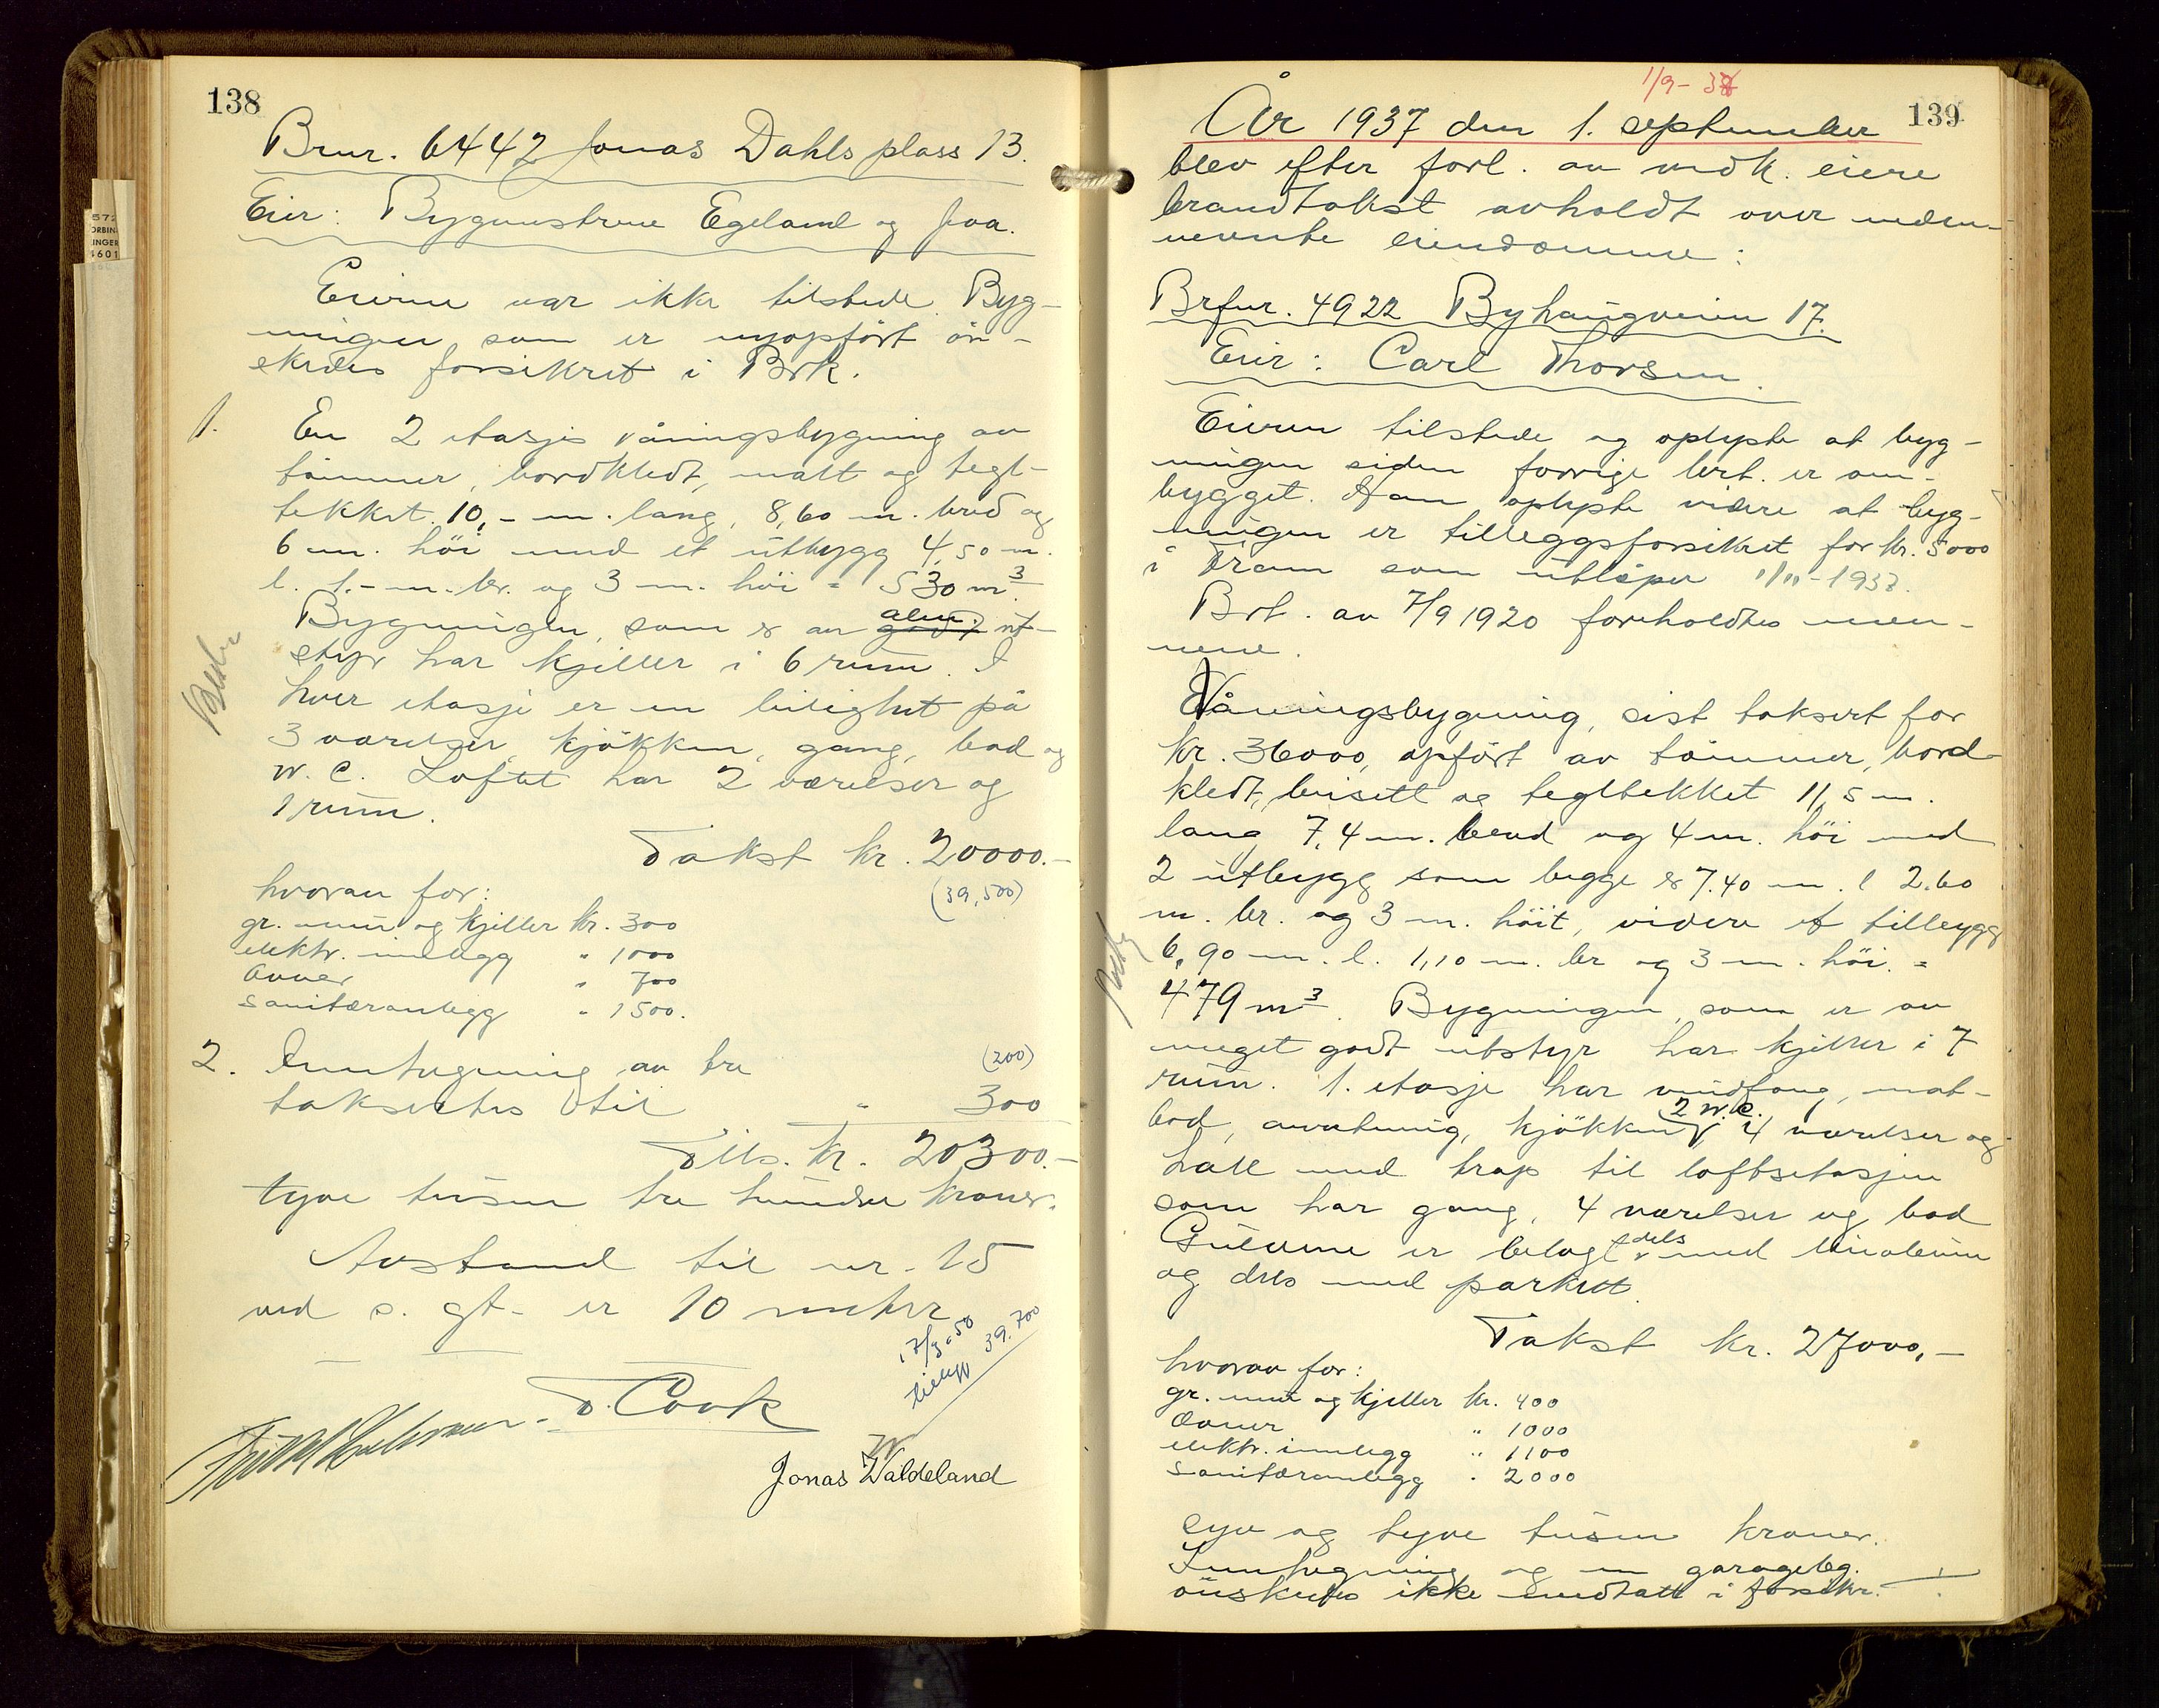 138
Brnr. 6442 Jonas Dahls plass 13.
Eier: Bygmestrene Egeland og Joa.
Eierne var ikke tilstede. Byg-
ningen som er nyopført ön-
skedes forsikret i Brk.
1. En 2 etasjes våningsbygning av
tömmer, bordkledt, malt og tegl-
tekket. 10,- m. lang, 8,60 m. bred og
6 m. höi med et utbygg 4,50 m.
l. 1.- m. br. og 3 m. höi = 530 m³.
Bygningen, som er av godt alm. ut-
styr har kjeller i 6 rum. I
hver etasje er en leilighet på
3 værelser, kjökken, gang, bad og
W.C. Loftet har 2 værelser og
1 rum.
Takst kr. 20000.-
(39,500)
hvorav for:
gr. mur og kjeller kr. 300
elektr. innlegg " 1000
ovner " 700
sanitæranlegg " 1500.
2. Innhegning av tre (200)
takseertes til " 300
Tils. kr. 20300.-
tyve tusen tre hundre kroner.
Avstand til nr. 15
ved s. gt. er 10 meter
17/3-50
39.700
T. Cook
Jonas Waldeland
1/9-37
139
År 1937 den 1. september
blev efter forl. av vedk. eiere
branntakst avholdt over neden-
nevnte eiendomme:
Brfnr. 4922 Byhaugveien 17.
Eier: Carl Thorsen.
Eieren tilstede og oplyste at byg-
ningen siden forrige brt. er om-
bygget. Han oplyste videre at byg-
ningen er tilleggsforsikret for kr. 5000
i Fram som utlöper 1/11-1937.
Brt. av 7/9 1920 foreholdtes men-
nene.
Våningsbygning, sist taksert for
kr. 36000, opfört av tömmer, bord-
kledt, beisett og tegltekket 11,5 m.
lang, 7,4 m. bred og 4 m. höi med
2 utbygg som begge er 7.40 m. l 2.60
m. br. og 3 m. höit, videre et tilbygg
6,90 m. l. 1,10 m. br og 3 m. höi. =
479 m³. Bygningen, som er av
meget godt utstyr har kjeller i 7
rum. 1. etasje har vindfang, mat-
bod, anretning, kjökken, 2 W.C. 4 værelser og
hall med trap til loftsetasjen
som har gang, 4 værelser og bad
Gulvene er belagt dels med linoleum
og dels med parkett.
Takst kr. 27000,-
hvorav for:
gr. mur og kjeller kr. 400
Ovner " 1000
elektr. innlegg " 1100
sanitæranlegg " 2000
syv og tyve tusen kroner.
Innhegning og en garagebg.
önskedes ikke medtatt i forsikr.